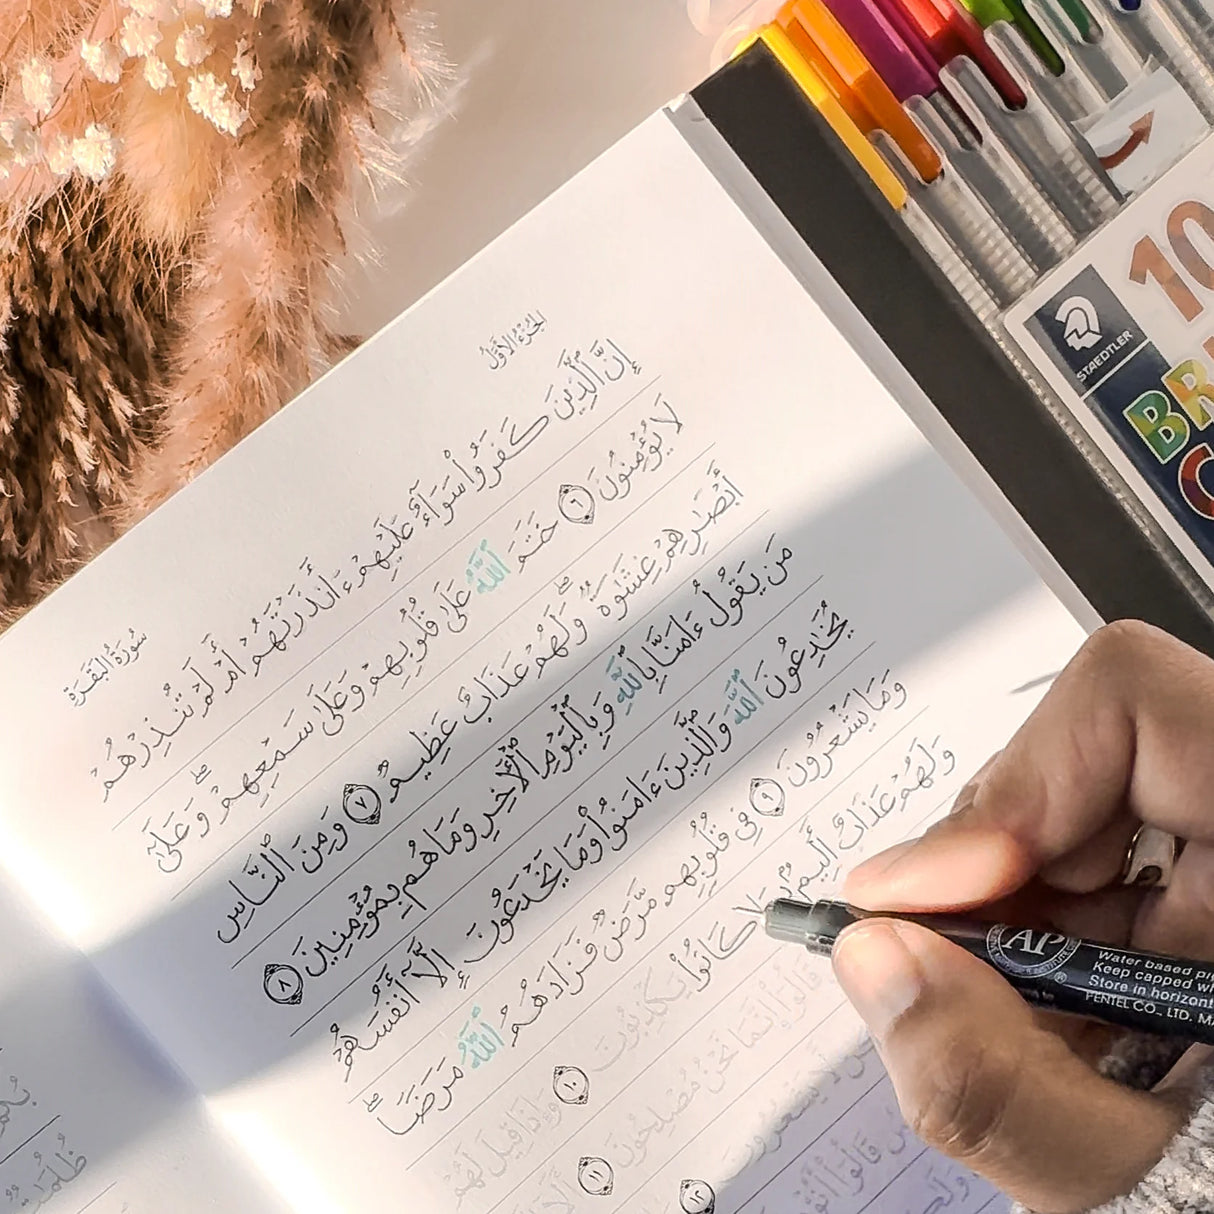 الجُزْءُ الأَوَّلُ
سُورَةُ البَقَرَةِ
إِنَّ ٱلَّذِينَ كَفَرُوا۟ سَوَآءٌ عَلَيْهِمْ ءَأَنذَرْتَهُمْ أَمْ لَمْ تُنذِرْهُمْ
لَا يُؤْمِنُونَ ٦ خَتَمَ ٱللَّهُ عَلَىٰ قُلُوبِهِمْ وَعَلَىٰ سَمْعِهِمْ ۖ وَعَلَىٰٓ
أَبْصَٰرِهِمْ غِشَٰوَةٌ ۖ وَلَهُمْ عَذَابٌ عَظِيمٌ ٧ وَمِنَ ٱلنَّاسِ
مَن يَقُولُ ءَامَنَّا بِٱللَّهِ وَبِٱلْيَوْمِ ٱلْـَٔاخِرِ وَمَا هُم بِمُؤْمِنِينَ ٨
يُخَٰدِعُونَ ٱللَّهَ وَٱلَّذِينَ ءَامَنُوا۟ وَمَا يَخْدَعُونَ إِلَّآ أَنفُسَهُمْ
وَمَا يَشْعُرُونَ ٩ فِى قُلُوبِهِم مَّرَضٌ فَزَادَهُمُ ٱللَّهُ مَرَضًا ۖ
وَلَهُمْ عَذَابٌ أَلِيمٌۢ بِمَا كَانُوا۟ يَكْذِبُونَ ١٠ وَإِذَا قِيلَ لَهُمْ
قَالُوٓا۟ إِنَّمَا نَحْنُ مُصْلِحُونَ ١١ أَلَآ
لَّا يَشْعُرُونَ ١٢
قَالُوٓا۟ أَنُؤْمِنُ
STAEDTLER
10
AP
Water based pi
Keep capped w
Store in horizont
PENTEL CO., LTD. MA